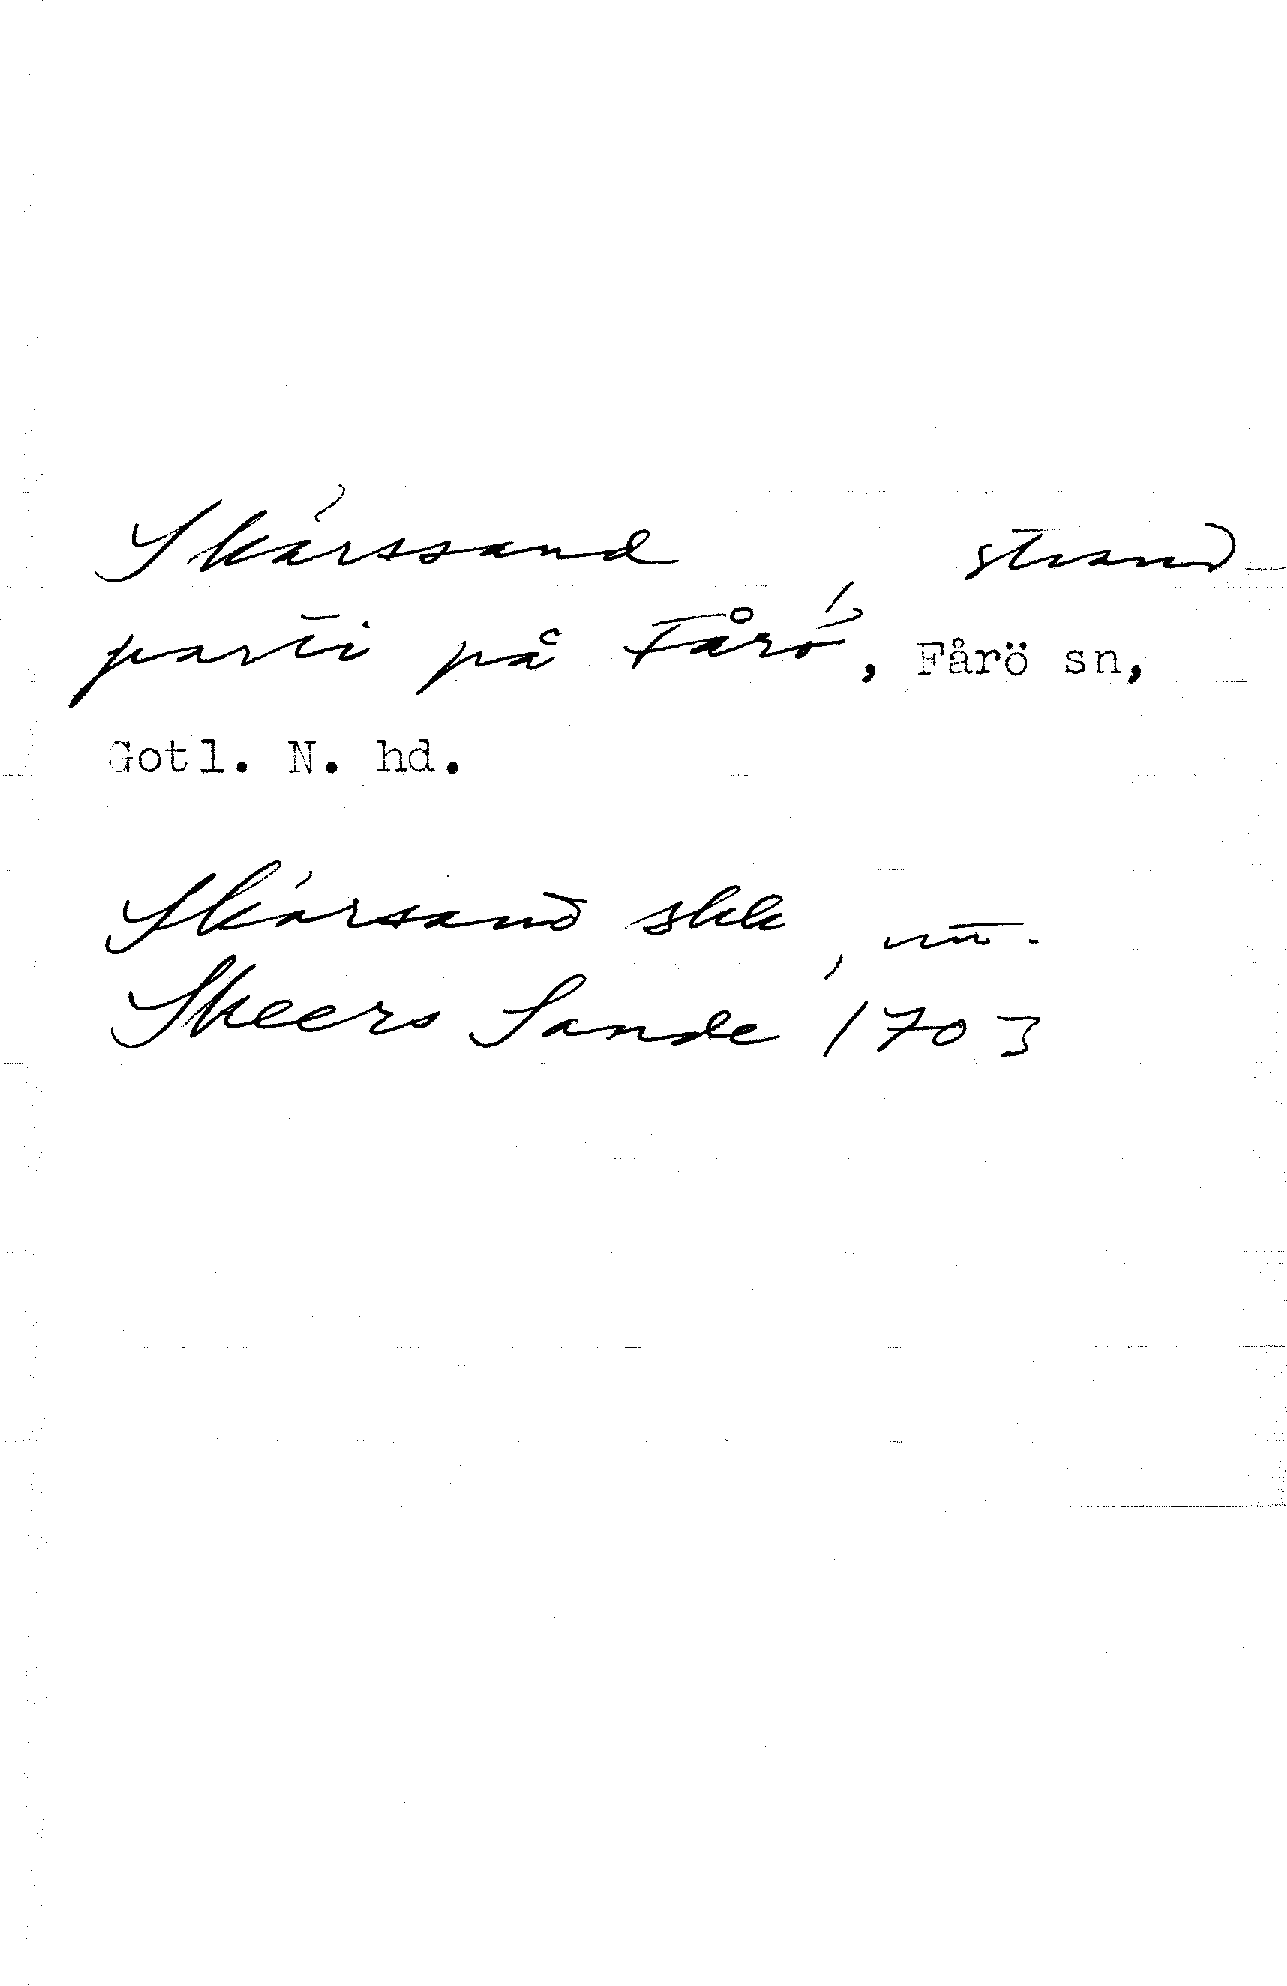 Skärssand strand-
parti på Fårö, Fårö sn,
Gotl. N. hd.
Skärsand skk,
Skeers Sande 1703